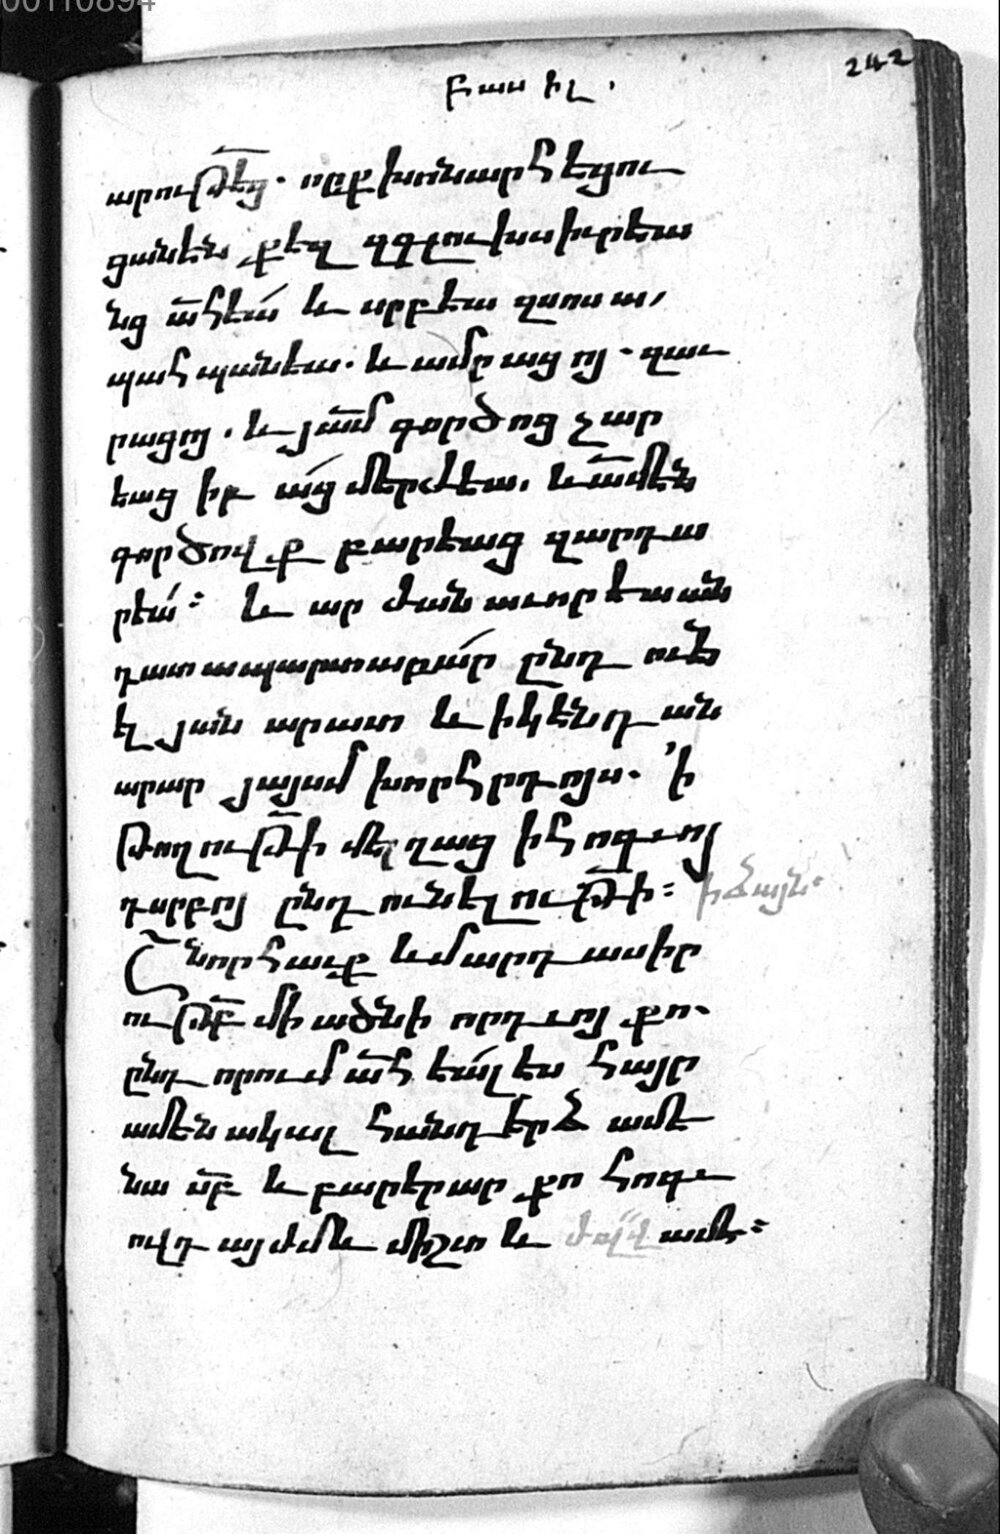 00110894
242
Բասիլ.
արութեց. որք խոնարհեցու
ցանեն քեզ զգլուխս իւրեա
նց ա՟հեա՛ և սրբեա զսոսա,
պահպանեա. և ամրացոյ. զաւ
րացոյ. և յա՟մ գործոց չար
եաց ի բ ա՛ց մերժեա, և ա՟մէն
գործովք բարեաց զարդա
րեա՛: և արժանաւորեա ան
դատապարտաբա՛ր ընդունե
լ յան արատ և ի կենդան
արար յայսմ խորհրդոյս. ՚ի
թողութի մեղաց ի հոգւոյ
դսրբոյ ընդունելութի: ի ձայն:
Շնորհաւք և մարդասիր
ութբ միածնի որդւոյ քո.
ընդ որում ա՟հ եա՛լ ես հայր
ամենակալ հանդերձ ամե
նա սբ և բարերար քո հոգւ
ովդ այժմ և միշտ և ժս՛վ ամե: